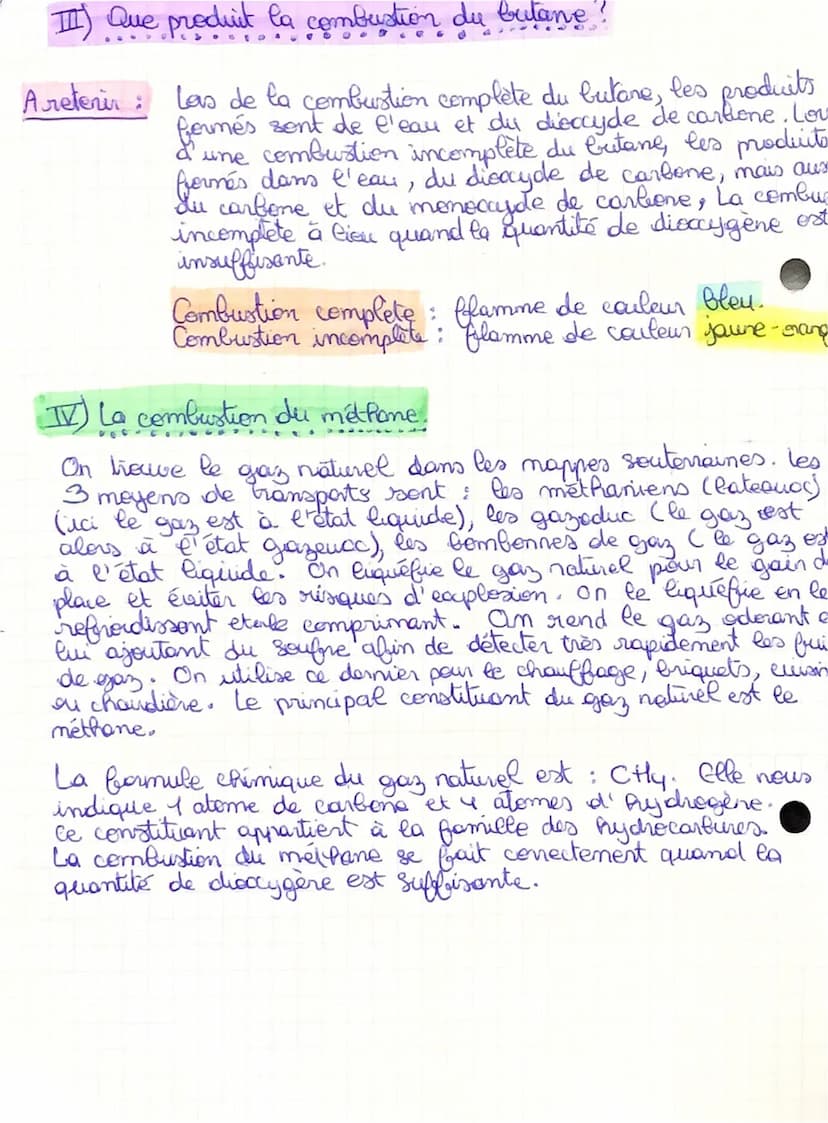 III) Que produit la combustion du butane?
A retenir : Lors de la combustion complète du butane, les produits
formés sont de l'eau et du dioxyde de carbone. Lors
d'une combustion incomplète du butane, les produits
formés dans l'eau, du dioxyde de carbone, mais aus
du carbone et du monoxyde de carbone, La combus
incomplète à lieu quand la quantité de dioxygène est
insuffisante.
Combustion complète : flamme de couleur bleu.
Combustion incomplète : flamme de couleur jaune-orang
IV) La combustion du méthane.
On trouve le gaz naturel dans les nappes souterraines. Les
3 moyens de transports sont : les méthaniens (bateaux)
(ici le gaz est à l'état liquide), les gazoduc (le gaz est
alors à l'état gazeux), les bombonnes de gaz (le gaz es
à l'état liquide. On liquéfie le gaz naturel pour le gain d
place et éviter les risques d'explosion. On le liquéfie en le
refroidissant et en le comprimant. On rend le gaz odorant e
lui ajoutant du soufre afin de détecter très rapidement les fui
de gaz. On utilise ce dernier pour le chauffage, briquets, cuisin
ou chaudière. Le principal constituant du gaz naturel est le
méthane.
La formule chimique du gaz naturel est : CH4. Elle nous
indique 1 atome de carbone et 4 atomes d'hydrogène.
Ce constituant appartient à la famille des hydrocarbures.
La combustion du méthane se fait correctement quand la
quantité de dioxygène est suffisante.